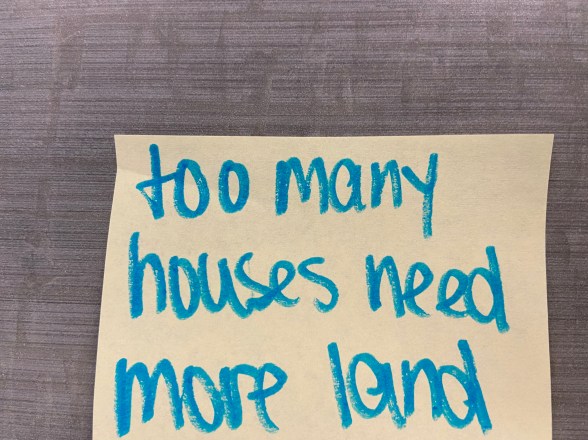 too many
houses need
more land